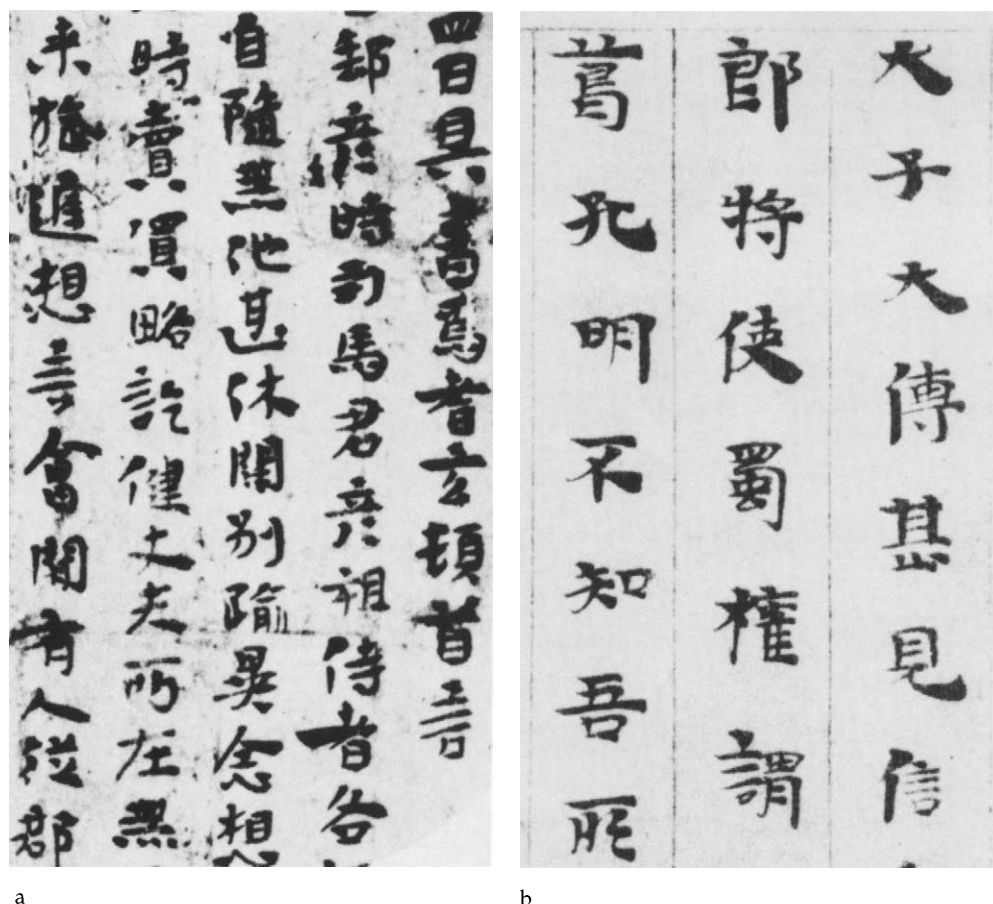 四日具書焉耆玄頓首言
郵彥時司馬君彥祖侍者各
自隨無他甚休闊別踰異念想
時賣買略訖健丈夫所在無
來旋進想言會聞有人從郡
a
大子大傅甚見信
郎將使蜀權謂
葛孔明不知吾所
b